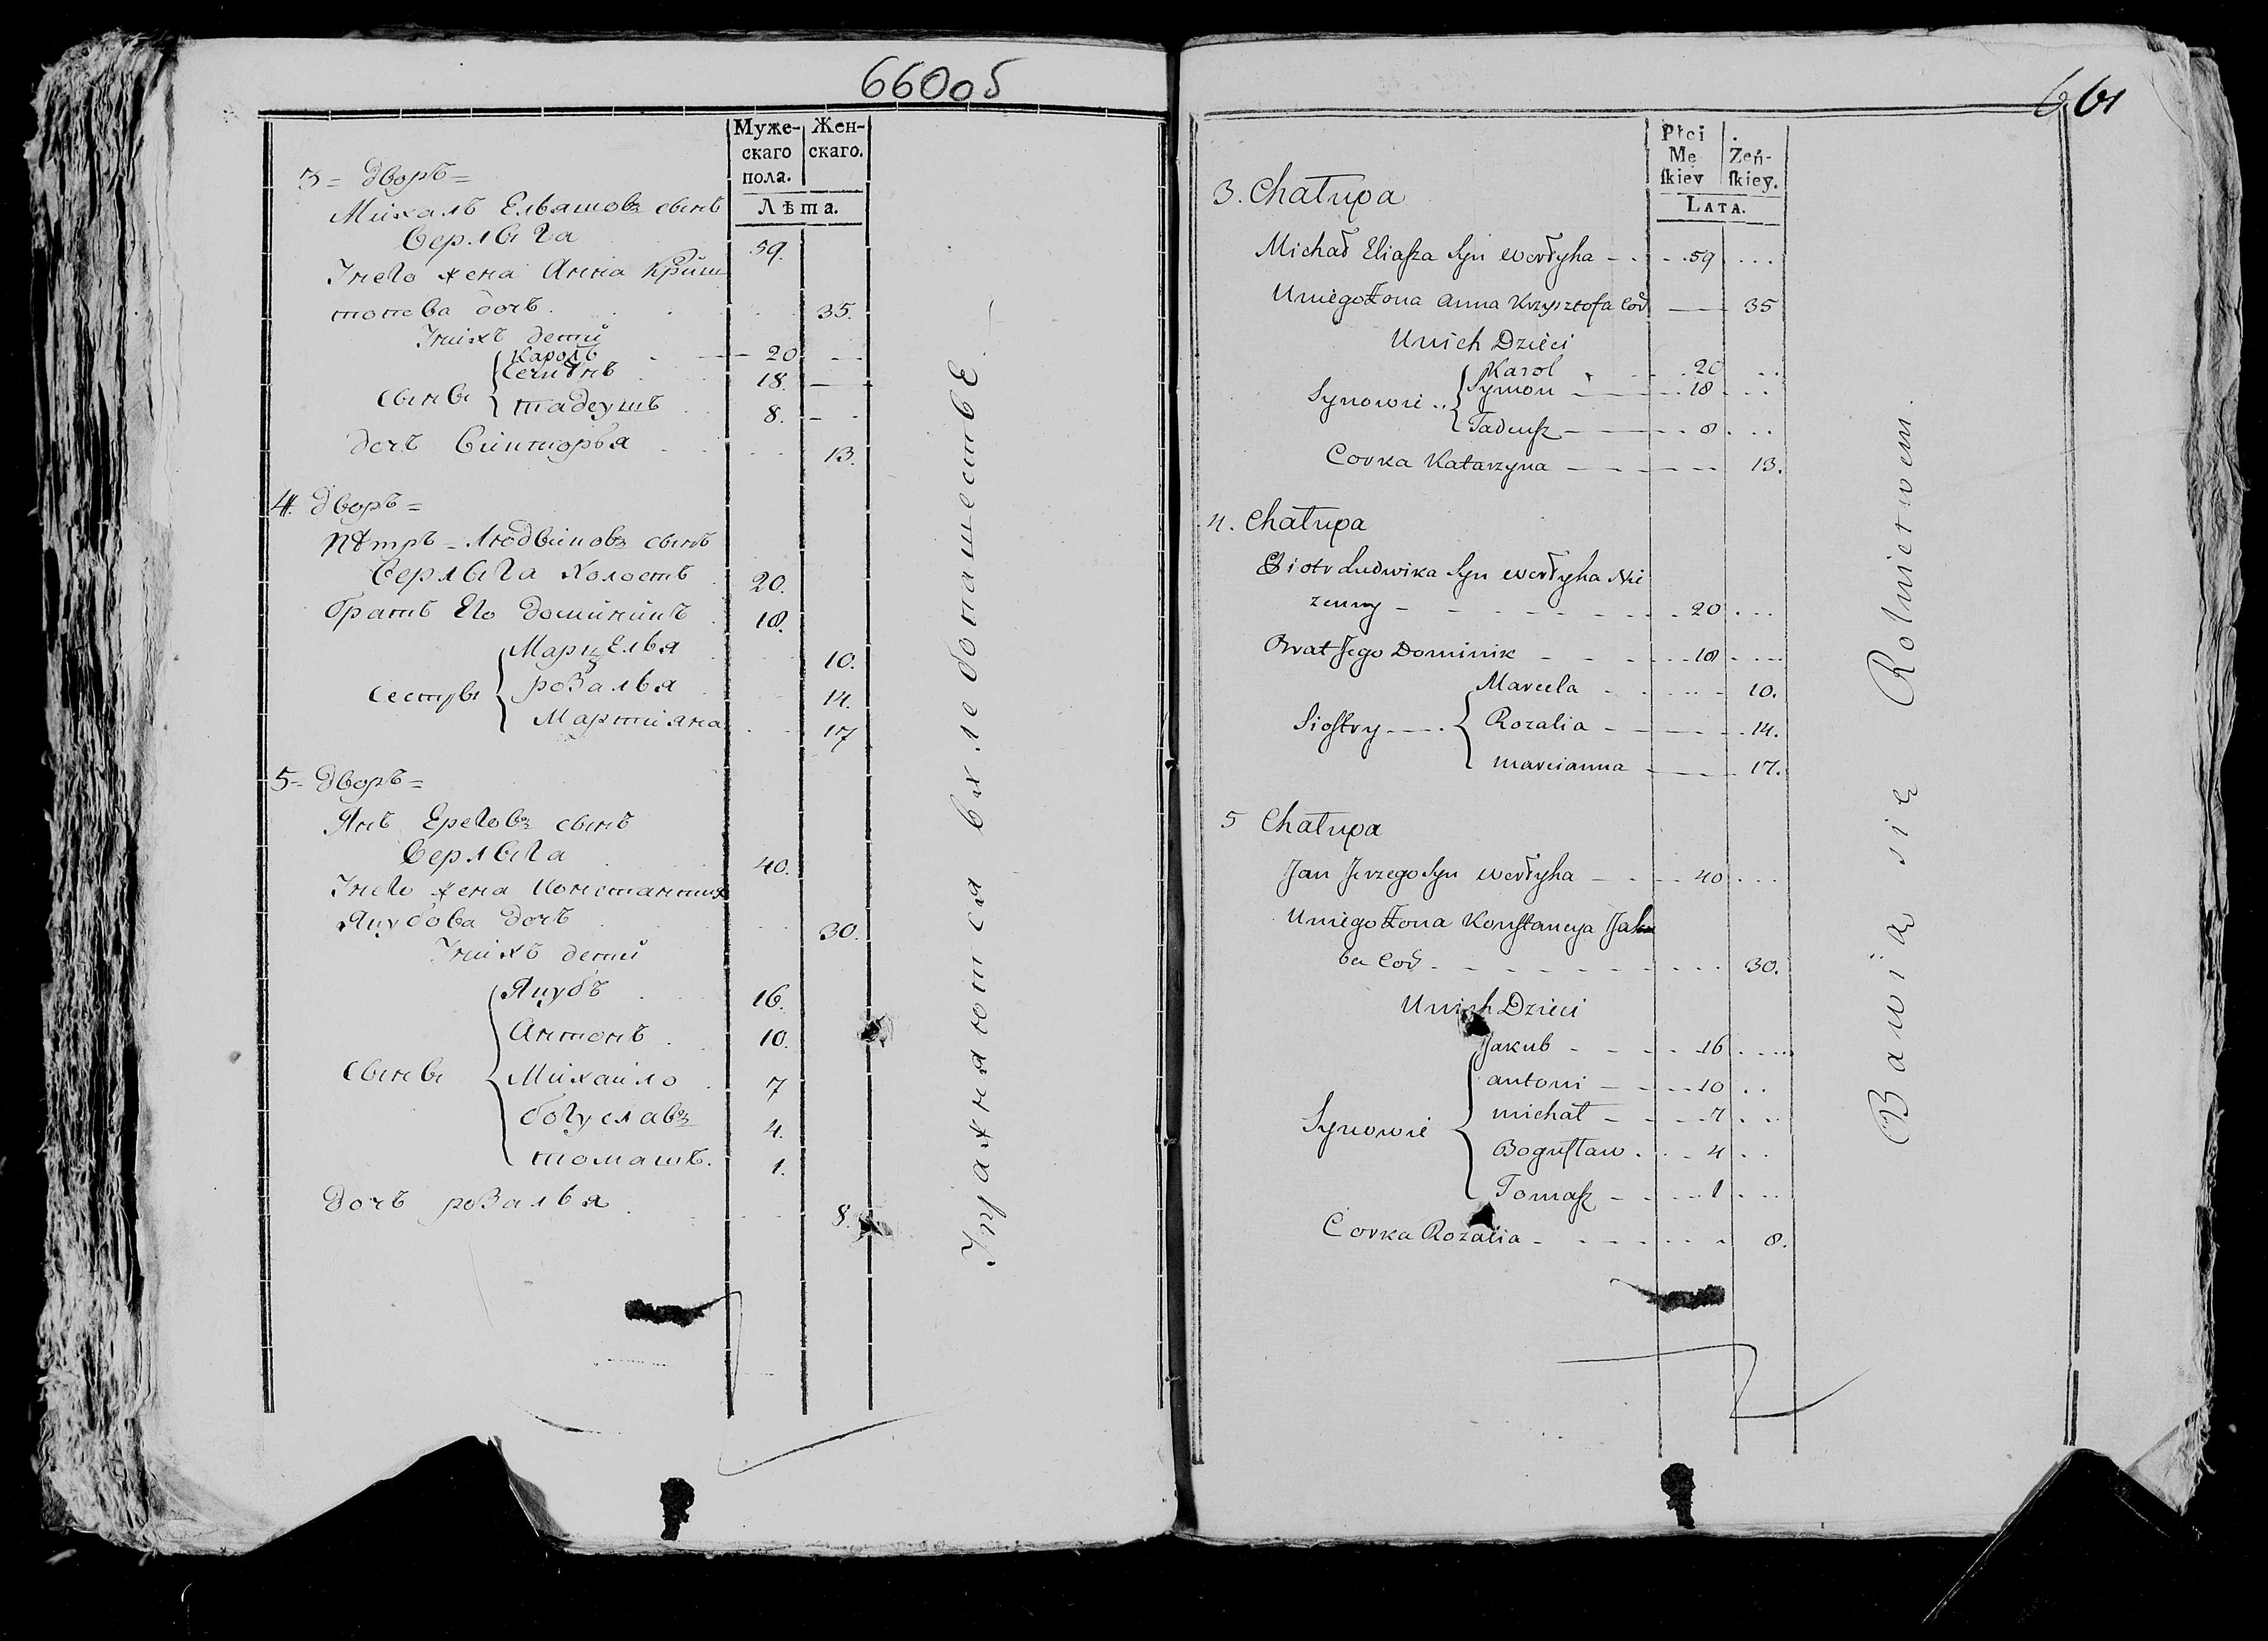 660об
Муже-
скаго
пола.
Жен-
скаго.
Лѣта.
3= дворъ=
Михалъ Ельяшовъ сынъ
Верлыга 59.
Унего жена Анна Криш
топова дочъ. 35.
Унихъ дети
Кароль 20
Семионъ 18.
сыны Тадеушъ 8.
дочъ 13.
4. дворъ=
Пѣтръ Людвиковъ сынъ
Верлыга холостъ 20.
братъ Его Доминикъ 18.
Марцелья 10.
сестры розалья 14.
Мартияна 17
5= дворъ=
Янъ Ереговъ сынъ
Верлыга 40.
Унего жена Констанция
Якубова дочъ 30.
Унихъ дети
Якубъ 16.
Антонъ 10.
сыны Михаило 7
богуславъ 4.
томашъ. 1.
дочъ розалья 8.
Упражняются вхлебопашествЕ
661
Płci
Mę
ſkiey
Zeń-
ſkiey.
LATA.
3. Chałupa
Michał Eliaſza Syn Werłyha 59
Uniego Żona Anna Krzysztofa Cod 35
Unich Dzieci
Karol 20
Synowie Symon 18
Tadeuſz 8
Corka Katarzyna 13.
4. Chałupa
Piotr Ludwika Syn Werłyha Nie
zenny 20
Brat Jego Dominik 18
Marcela 10.
Sioſtry Rozalia 14.
Marcianna 17.
5 Chałupa
Jan Jerzego Syn Werłyha 40
Uniego Żona Konſtancya Jaku
ba Cod 30.
Unich Dzieci
Jakub 16
antoni 10
Synowie michał 7
Boguſław 4
Tomaſz 1
Corka Rozalia 8.
Bawią się Rolnictwem.